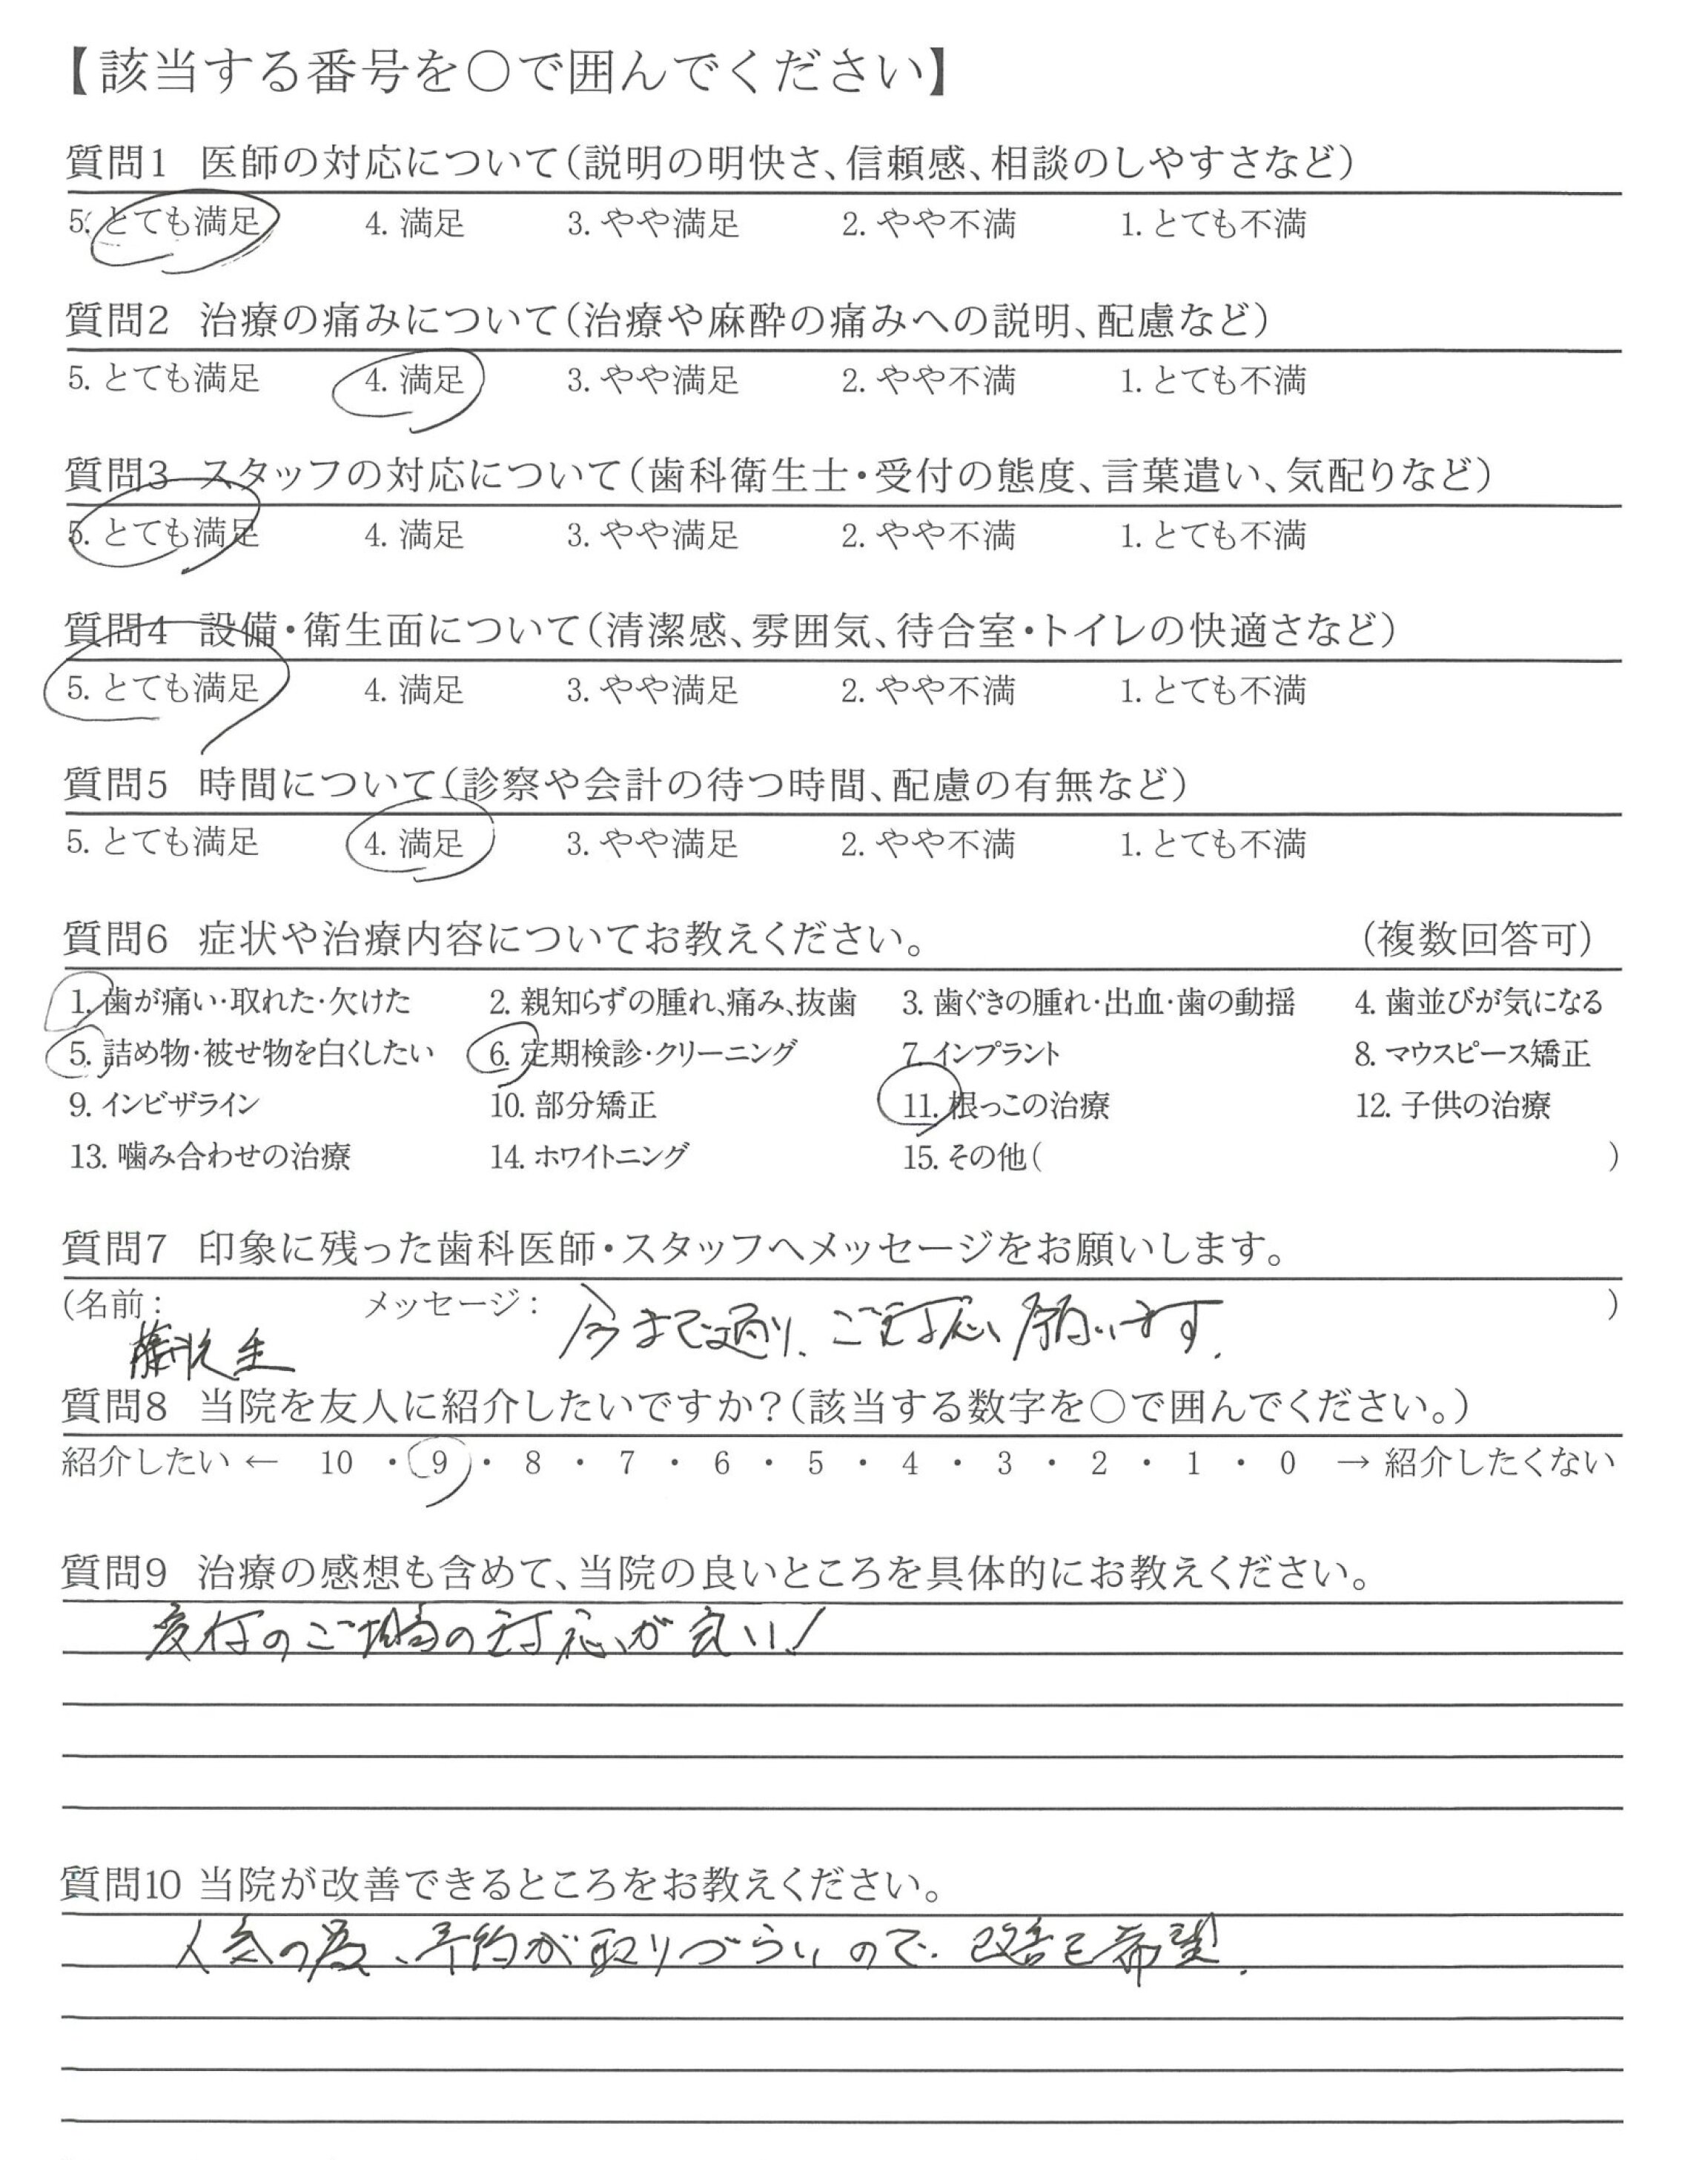 【該当する番号を○で囲んでください】
質問1 医師の対応について（説明の明快さ、信頼感、相談のしやすさなど）
5. とても満足 4. 満足 3. やや満足 2. やや不満 1. とても不満
質問2 治療の痛みについて（治療や麻酔の痛みへの説明、配慮など）
5. とても満足 4. 満足 3. やや満足 2. やや不満 1. とても不満
質問3 スタッフの対応について（歯科衛生士・受付の態度、言葉遣い、気配りなど）
5. とても満足 4. 満足 3. やや満足 2. やや不満 1. とても不満
質問4 設備・衛生面について（清潔感、雰囲気、待合室・トイレの快適さなど）
5. とても満足 4. 満足 3. やや満足 2. やや不満 1. とても不満
質問5 時間について（診察や会計の待つ時間、配慮の有無など）
5. とても満足 4. 満足 3. やや満足 2. やや不満 1. とても不満
質問6 症状や治療内容についてお教えください。 （複数回答可）
1. 歯が痛い・取れた・欠けた 2. 親知らずの腫れ、痛み、抜歯 3. 歯ぐきの腫れ・出血・歯の動揺 4. 歯並びが気になる
5. 詰め物・被せ物を白くしたい 6. 定期検診・クリーニング 7. インプラント 8. マウスピース矯正
9. インビザライン 10. 部分矯正 11. 根っこの治療 12. 子供の治療
13. 噛み合わせの治療 14. ホワイトニング 15. その他（ ）
質問7 印象に残った歯科医師・スタッフへメッセージをお願いします。
（名前： メッセージ： 今まで通り、ご対応願います。 ）
先生
質問8 当院を友人に紹介したいですか？（該当する数字を○で囲んでください。）
紹介したい ← 10 ・ 9 ・ 8 ・ 7 ・ 6 ・ 5 ・ 4 ・ 3 ・ 2 ・ 1 ・ 0 → 紹介したくない
質問9 治療の感想も含めて、当院の良いところを具体的にお教えください。
受付のご婦の対応が良い！
質問10 当院が改善できるところをお教えください。
人気の為、予約が取りづらいので、改善を希望。